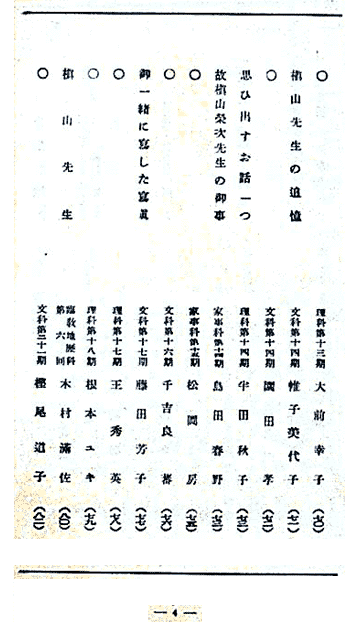 〇 理科第十三期 大前幸子 (七〇)
槇山先生の追憶 文科第十四期 帷子英代子 (七一)
〇 文科第十四期 園田孝 (七二)
思ひ出すお話一つ 理科第十四期 牛田秋子 (七三)
故槇山榮次先生の御事 家事科第十四期 島田春野 (七三)
〇 家事科第十五期 松岡房 (七五)
〇 文科第十六期 千吉良
御一緒に寫した寫眞 文科第十七期 藤田芳子 (七七)
〇 理科第十七期 王秀英 (七八)
〇 理科第十八期 根本ユキ (七九)
槇山先生 臨教地歴科第六回 木村滿佐 (八〇)
〇 文科第二十一期 樫尾道子
— 4 —